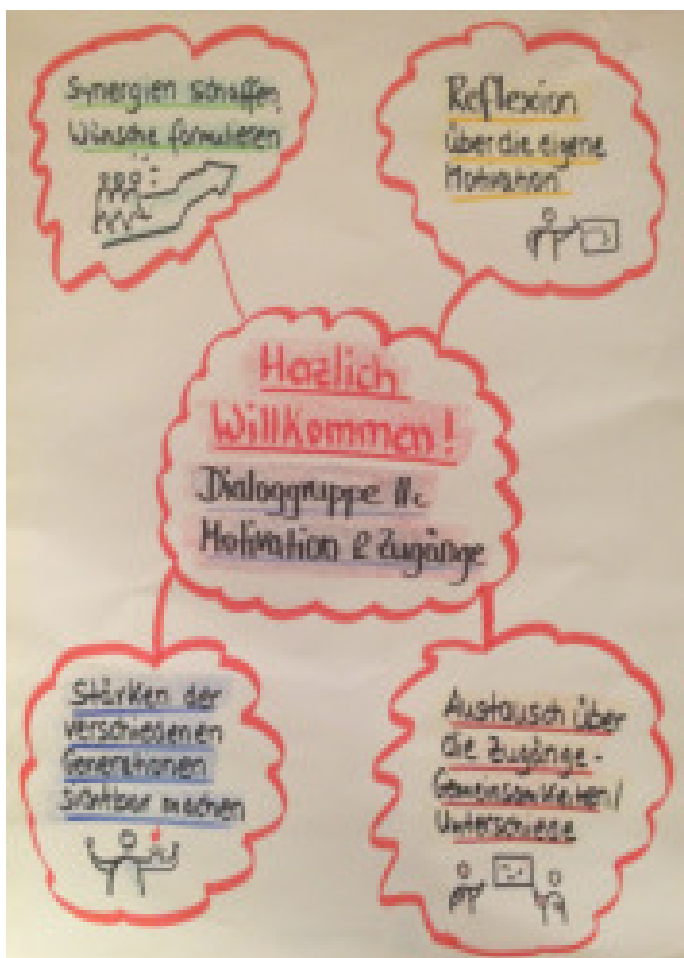 Synergien schaffen,
Wünsche formulieren
Reflexion
über die eigene
Motivation
Herzlich
Willkommen!
Dialoggruppe
Motivation & Zugänge
Stärken der
verschiedenen
Generationen
sichtbar machen
Austausch über
die Zugänge -
Gemeinsamkeiten/
Unterschiede